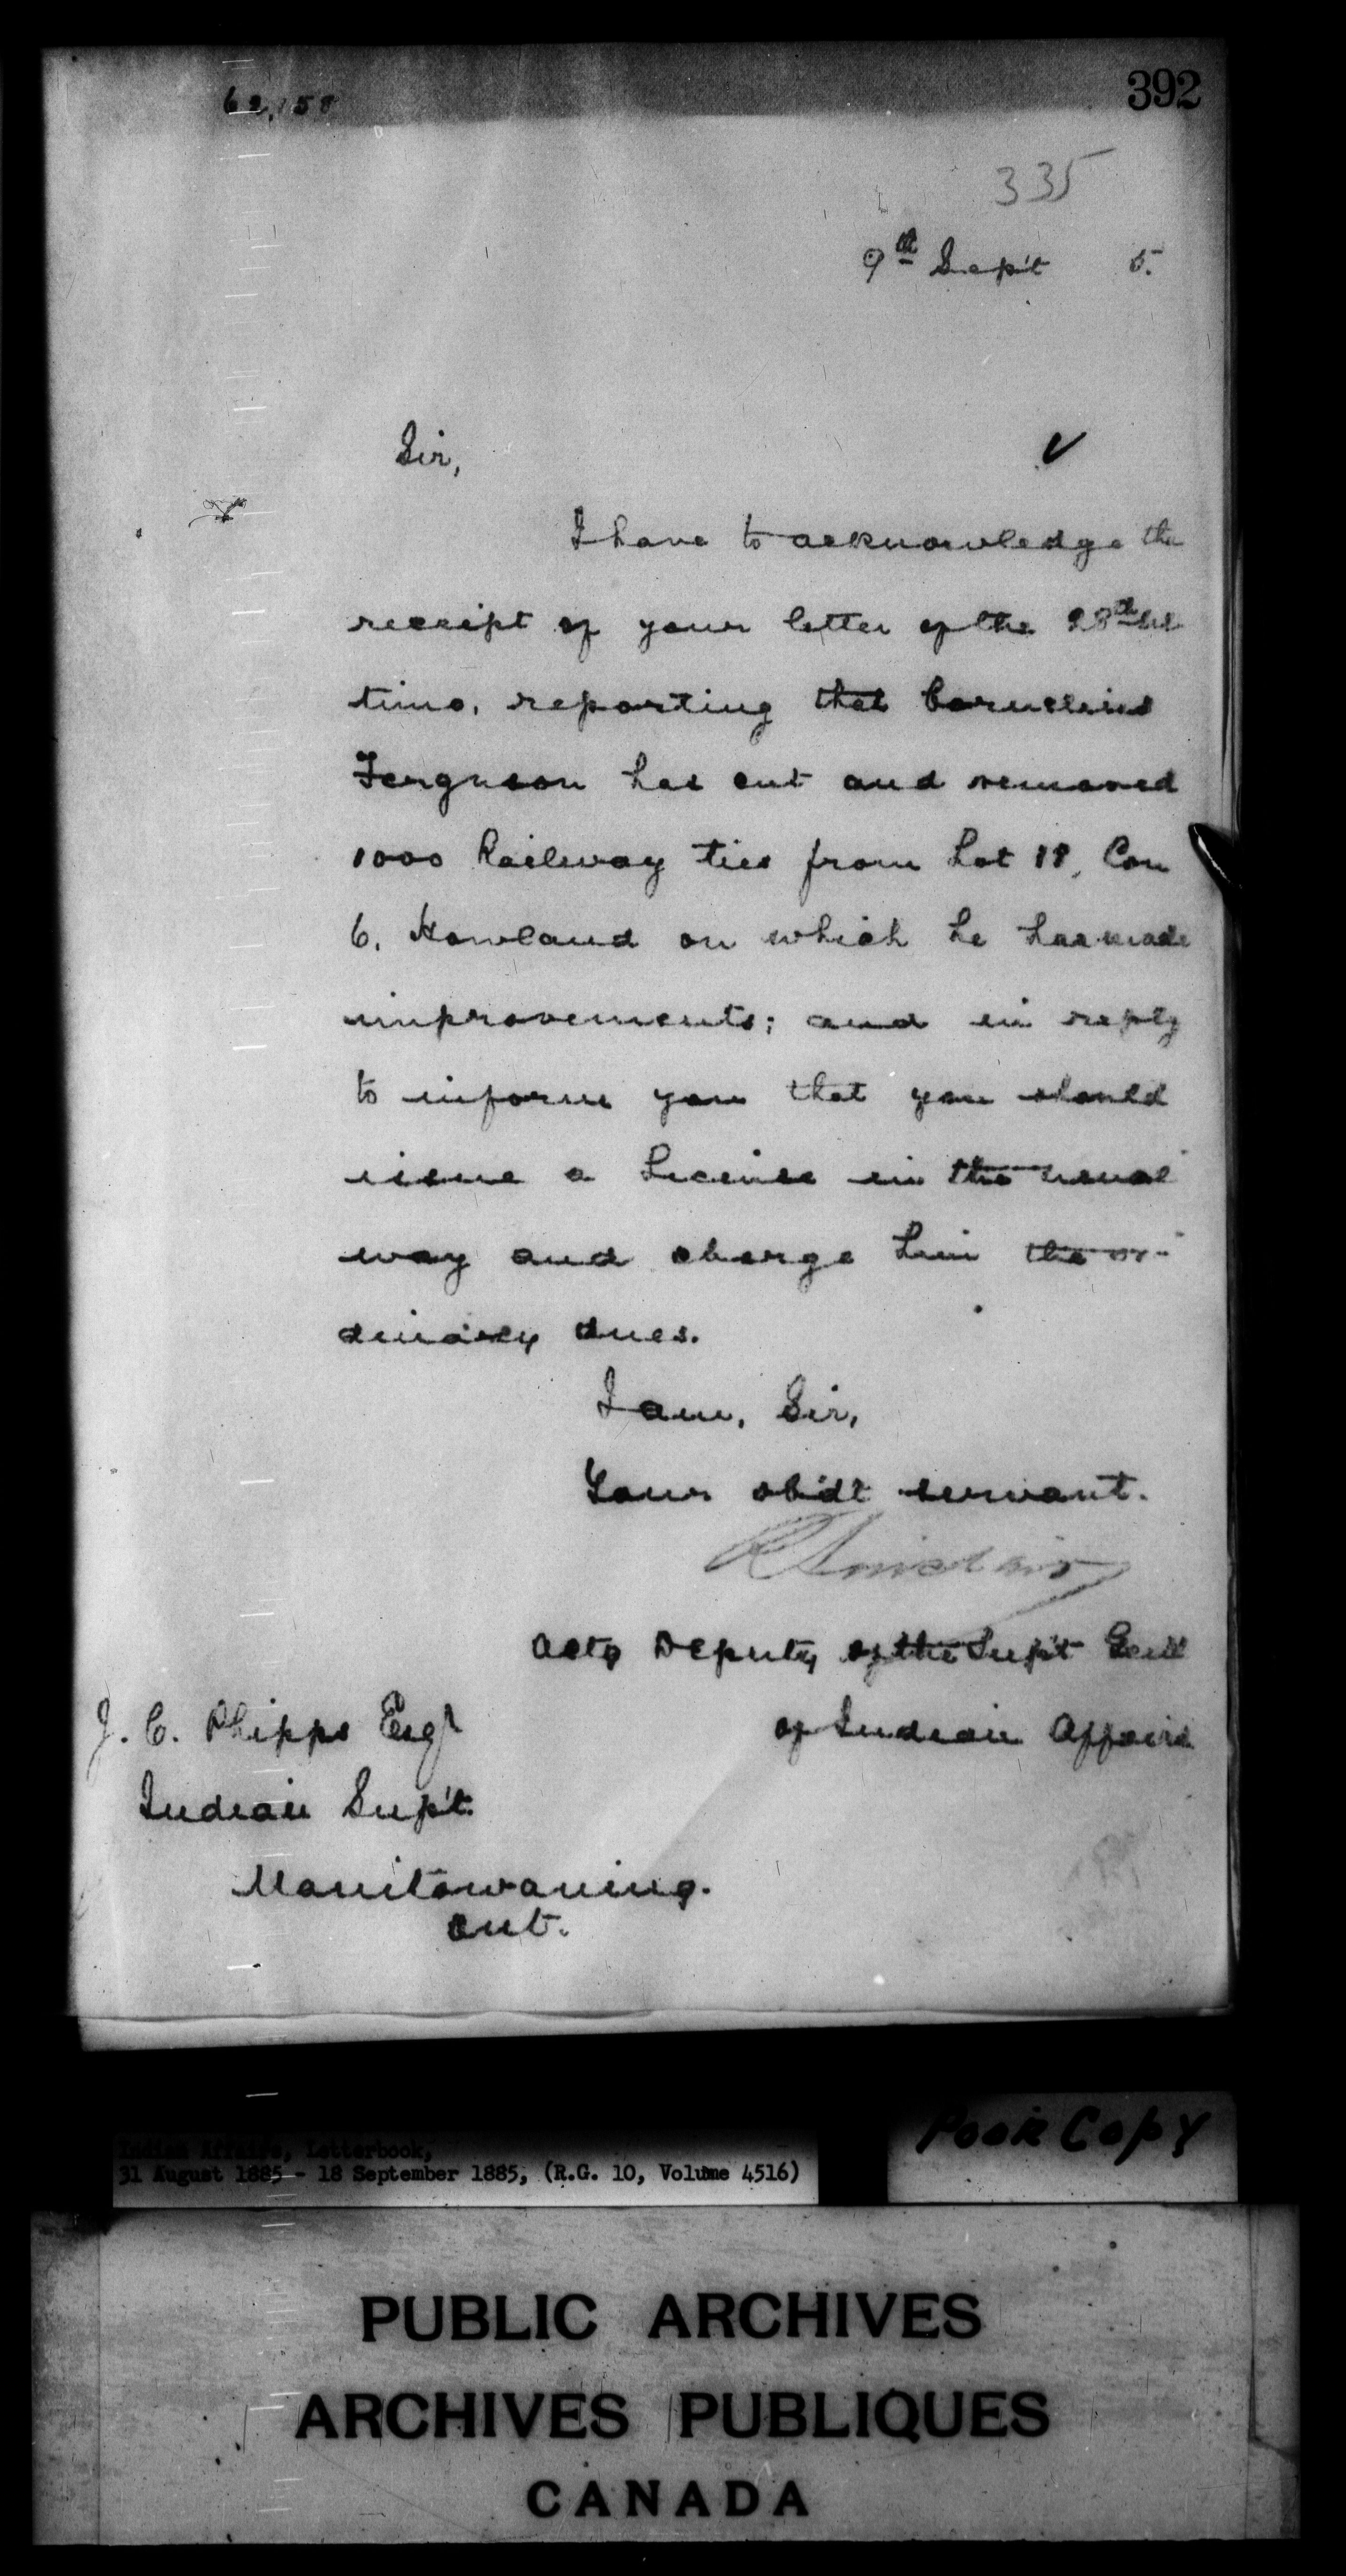 392
62,158
335
9th Sept 5.
Sir,
I have to acknowledge the
receipt of your letter of the 28th ul
timo, reporting that Cornelius
Ferguson has cut and removed
1000 Railway ties from Lot 18, Con
6, Howland on which he has made
improvements; and in reply
to inform you that you should
issue a License in the usual
way and charge him the or-
dinary dues.
I am, Sir,
Your obdt servant.
R Sinclair
Actg Deputy of the Supt Genl
of Indian Affairs
J. C. Phipps Esqr
Indian Supt.
Manitowaning.
Ont.
Poor Copy
Indian Affairs, Letterbook,
31 August 1885 - 18 September 1885, (R.G. 10, Volume 4516)
PUBLIC ARCHIVES
ARCHIVES PUBLIQUES
CANADA